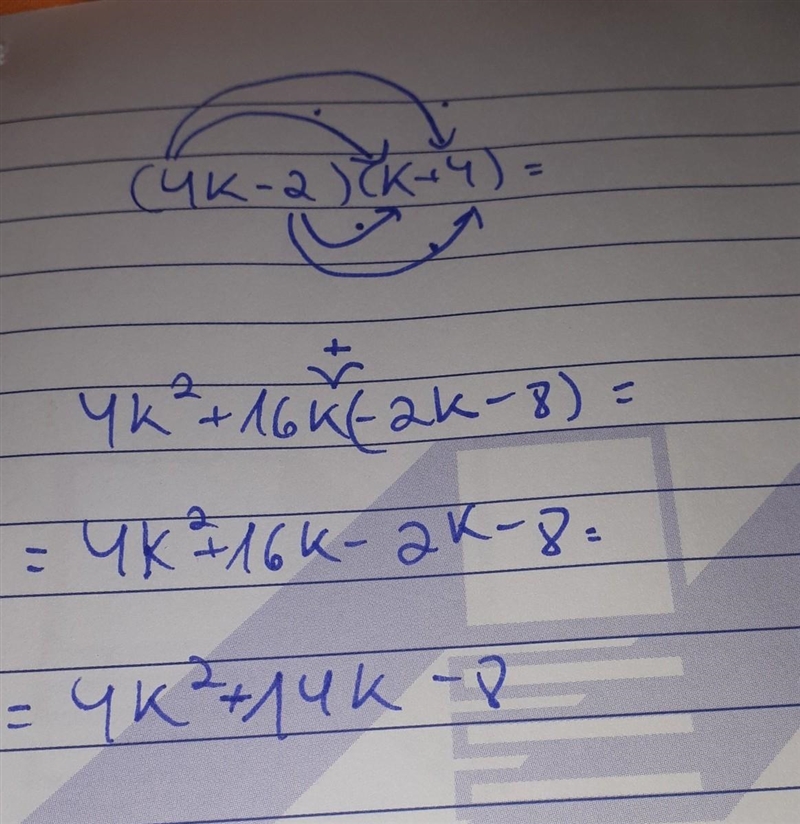 (4k-2)(k+4)=
+
4k²+16k(-2k-8)=
=4k²+16k-2k-8=
=4k²+14k-8